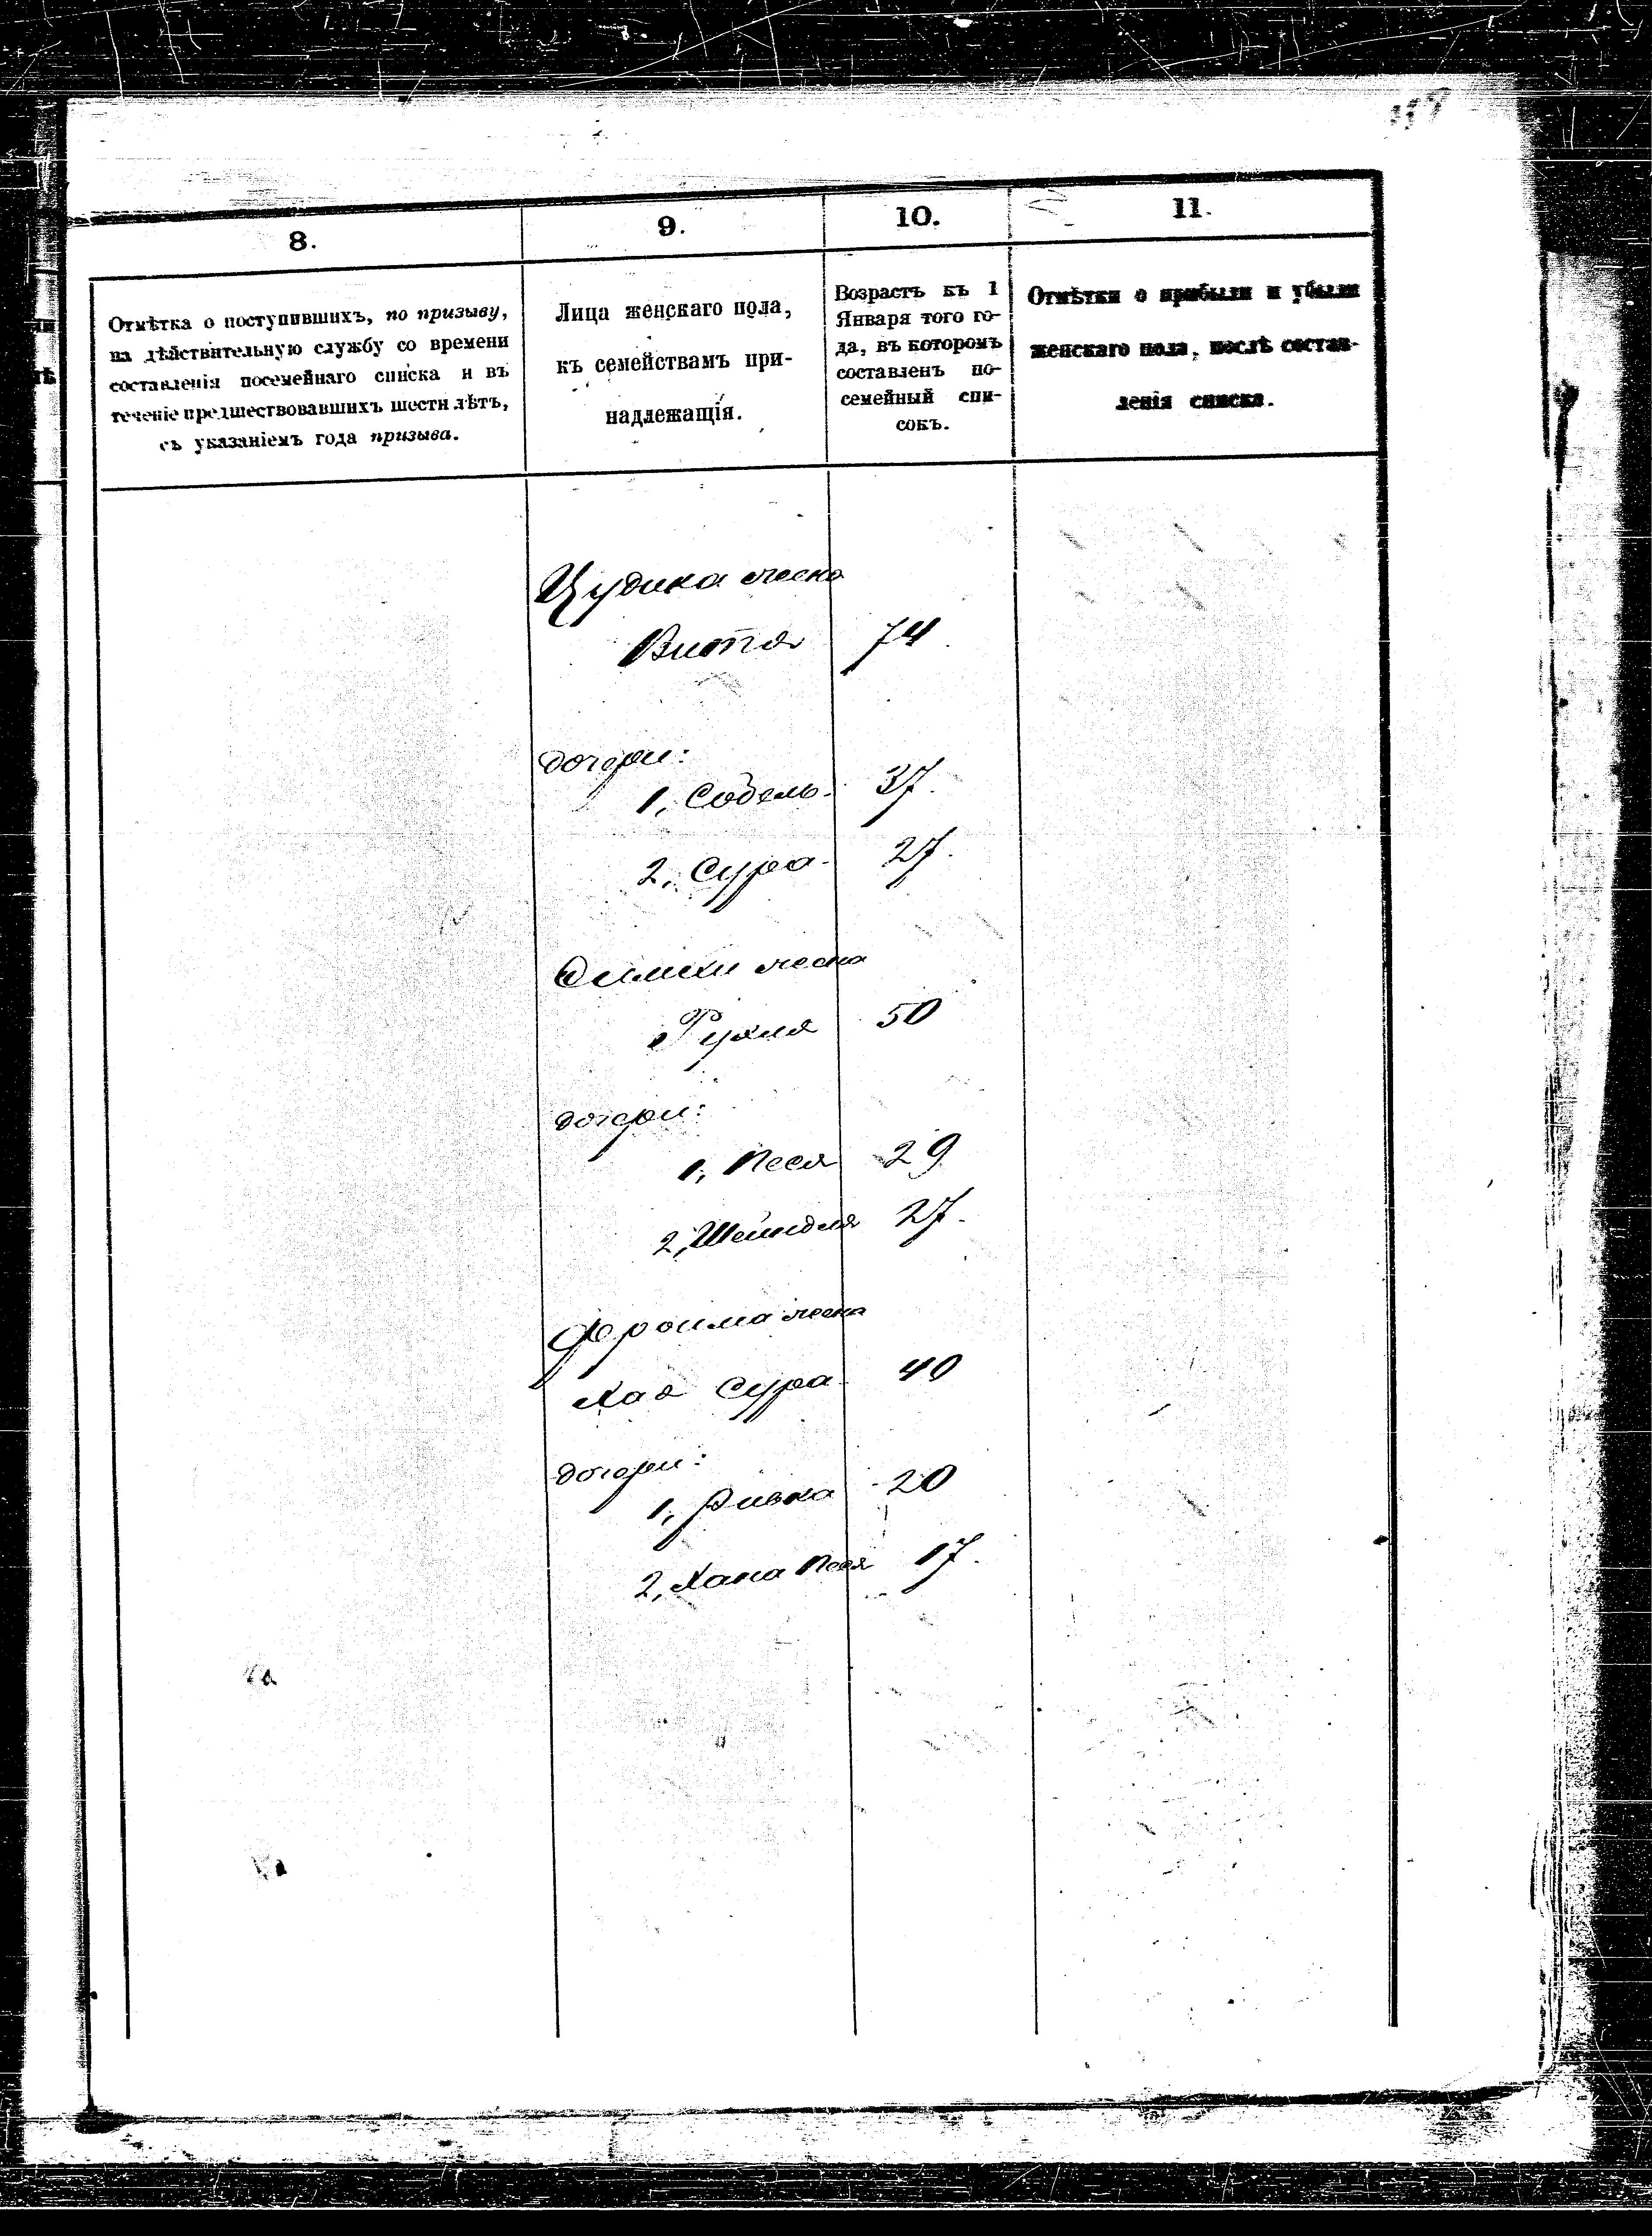 8.
9.
10.
11.
Отмѣтка о поступившихъ, по призыву,
на дѣйствительную службу со времени
составленія посемейнаго списка и въ
теченіе предшествовавшихъ шести лѣтъ,
съ указаніемъ года призыва.
Лица женскаго пола,
къ семействамъ при-
надлежащія.
Возрастъ къ 1
Января того го-
да, въ которомъ
составленъ по-
семейный спи-
сокъ.
Отмѣтки о прибыли и убыли
женскаго пола, послѣ состав-
ленія списка.
Цудика жена
Витя 74
дочери:
1, Собель 37.
2, Сура 27.
жена
Рухля 50
дочери:
1, Песя 29
2, Шейндля 27.
Фроима жена
Хая Сура 40
дочери:
1, Ривка 20
2, Хана Песя 17.